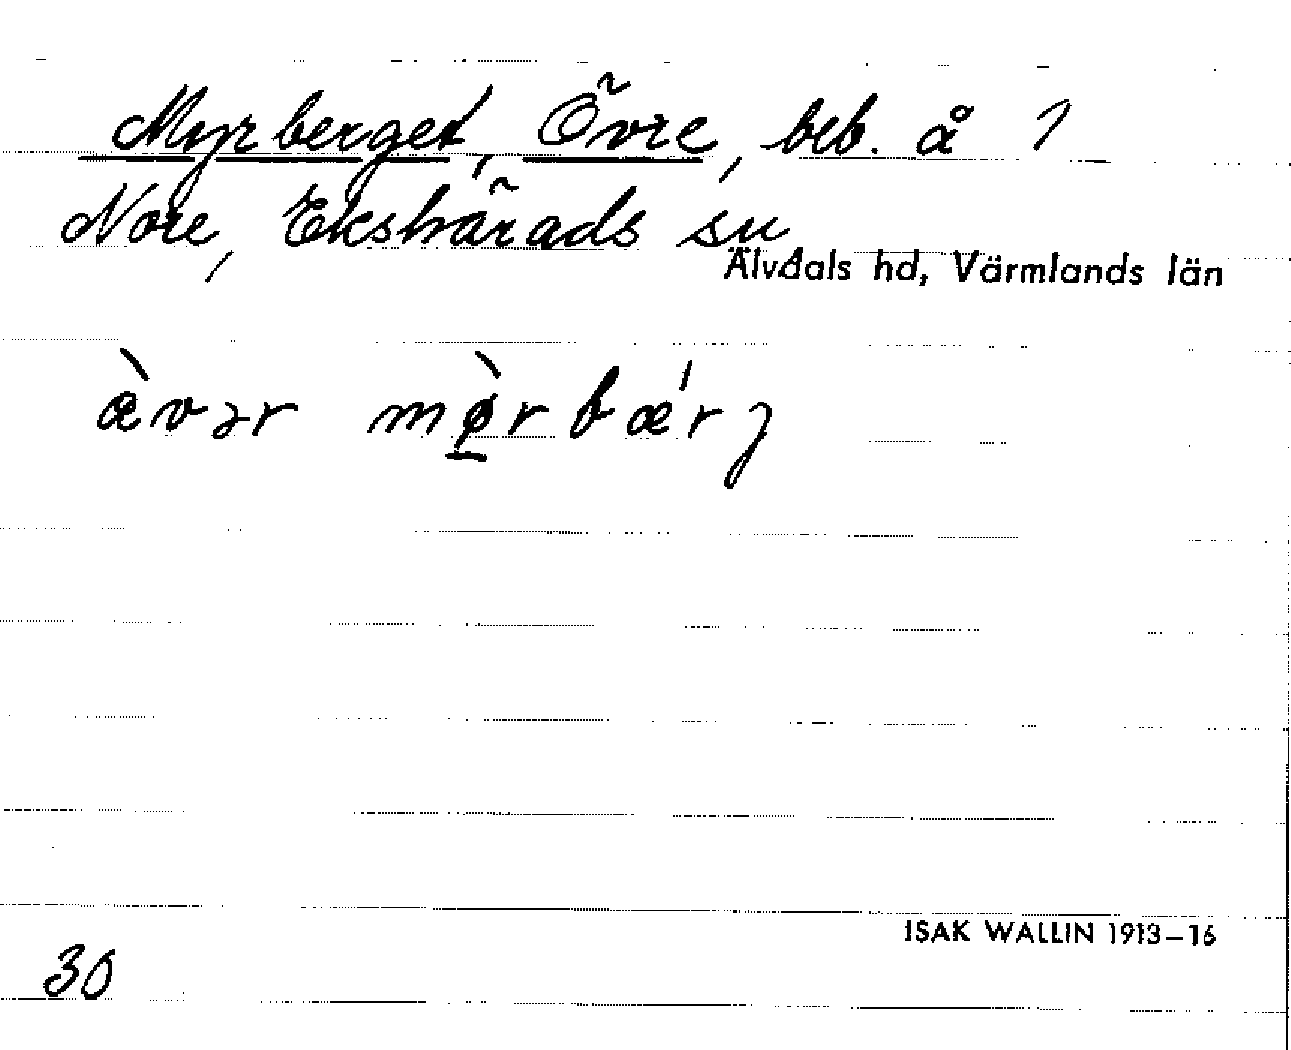 Myrberget, Övre, beb. å 1
Nore, Ekshärads sn
Älvdals hd, Värmlands län
æ̀vər mø̀rbǽrj
ISAK WALLIN 1913–16
30